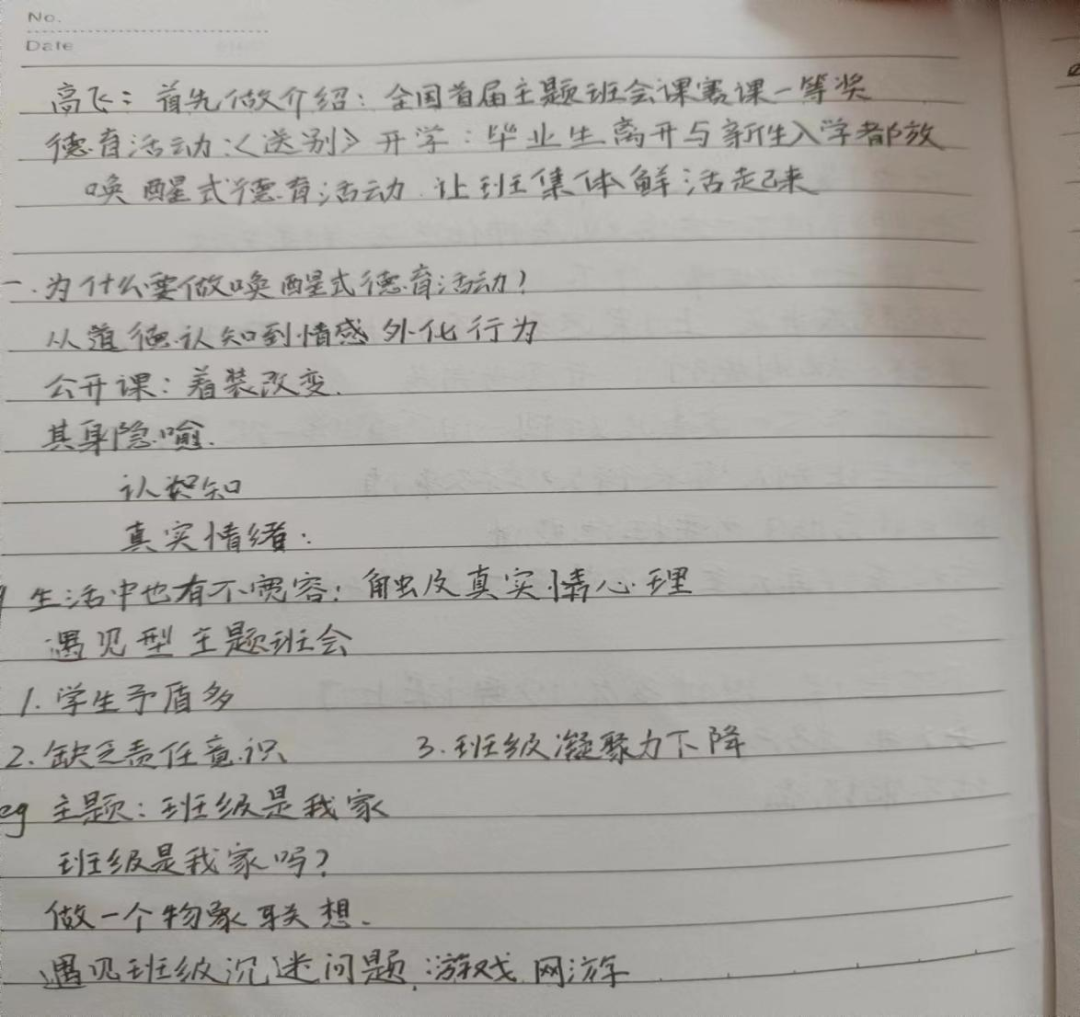 No.
Date
高飞：首先做介绍：全国首届主题班会课赛课一等奖
德育活动：《送别》开学：毕业生离开与新生入学都放
唤醒式德育活动 让班集体鲜活起来
一.为什么要做唤醒式德育活动？
从道德认知到情感外化行为
公开课：着装改变.
其身隐喻.
认知
真实情绪：
生活中也有不宽容：触及真实情心理
遇见型主题班会
1.学生矛盾多
2.缺乏责任意识 3.班级凝聚力下降
eg 主题：班级是我家
班级是我家吗？
做一个物象联想.
遇见班级沉迷问题：游戏 网游